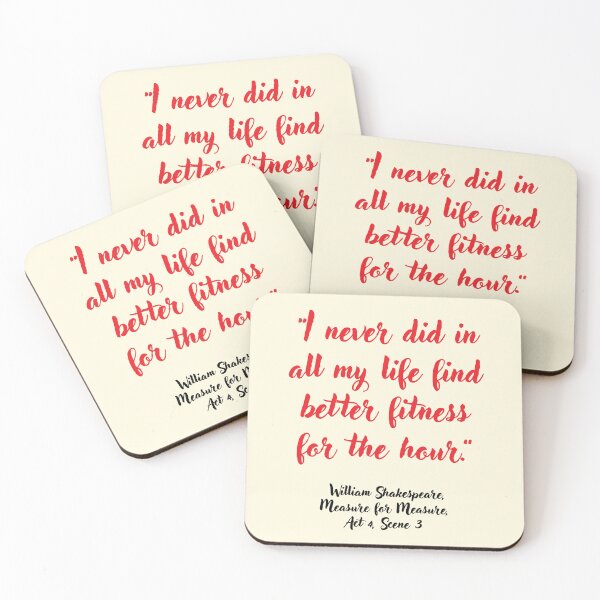 "I never did in
all my life find
better fitness
"I never did in
all my life find
better fitness
for the hour."
"I never did in
all my life find
better fitness
for the
William
Measure for
Act 4,
"I never did in
all my life find
better fitness
for the hour."
William Shakespeare,
Measure for Measure,
Act 4, Scene 3